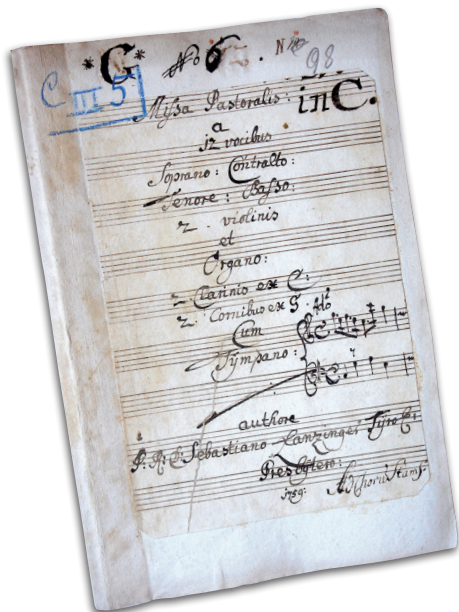 *G* No 6. N
98
C III 5
Missa Pastoralis: in C.
a
12 vocibus
Soprano: Contralto:
Tenore: Basso:
2. violinis
et
Organo:
2 Clarinis ex C:
2. Cornibus ex G.
Cum
Tÿmpano:
authore
P: R: D: Sebastiano Lanzinger Tÿro
Presbÿtero:
1759. Ad Chorū Stams.